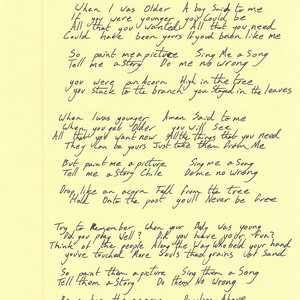 When I was Older A boy Said to me
If you were younger you could be
All that you wanted All that you need
Could have been yours If youd been like me
So paint me a picture Sing Me a Song
Tell me a Story Do me no wrong
you were an Acorn High in the tree
you stuck to the branch you Stayed in the leaves
When I was younger A man Said to me
When you get Older you will See
All that you want now All the things that you need
They can be yours Just take them from Me
But paint me a picture Sing me a Song
Tell me a Story Chile Do me no wrong
Drop like an acorn Fall from the tree
Hold Onto the post you'll Never be free
Try to Remember When your Body was young
Did you play well? Did you have your fun?
Think of the people Along the Way who held your hand
you've touched More Souls than grains of Sand
So paint them a picture Sing them a Song
Tell them a Story Do them No wrong